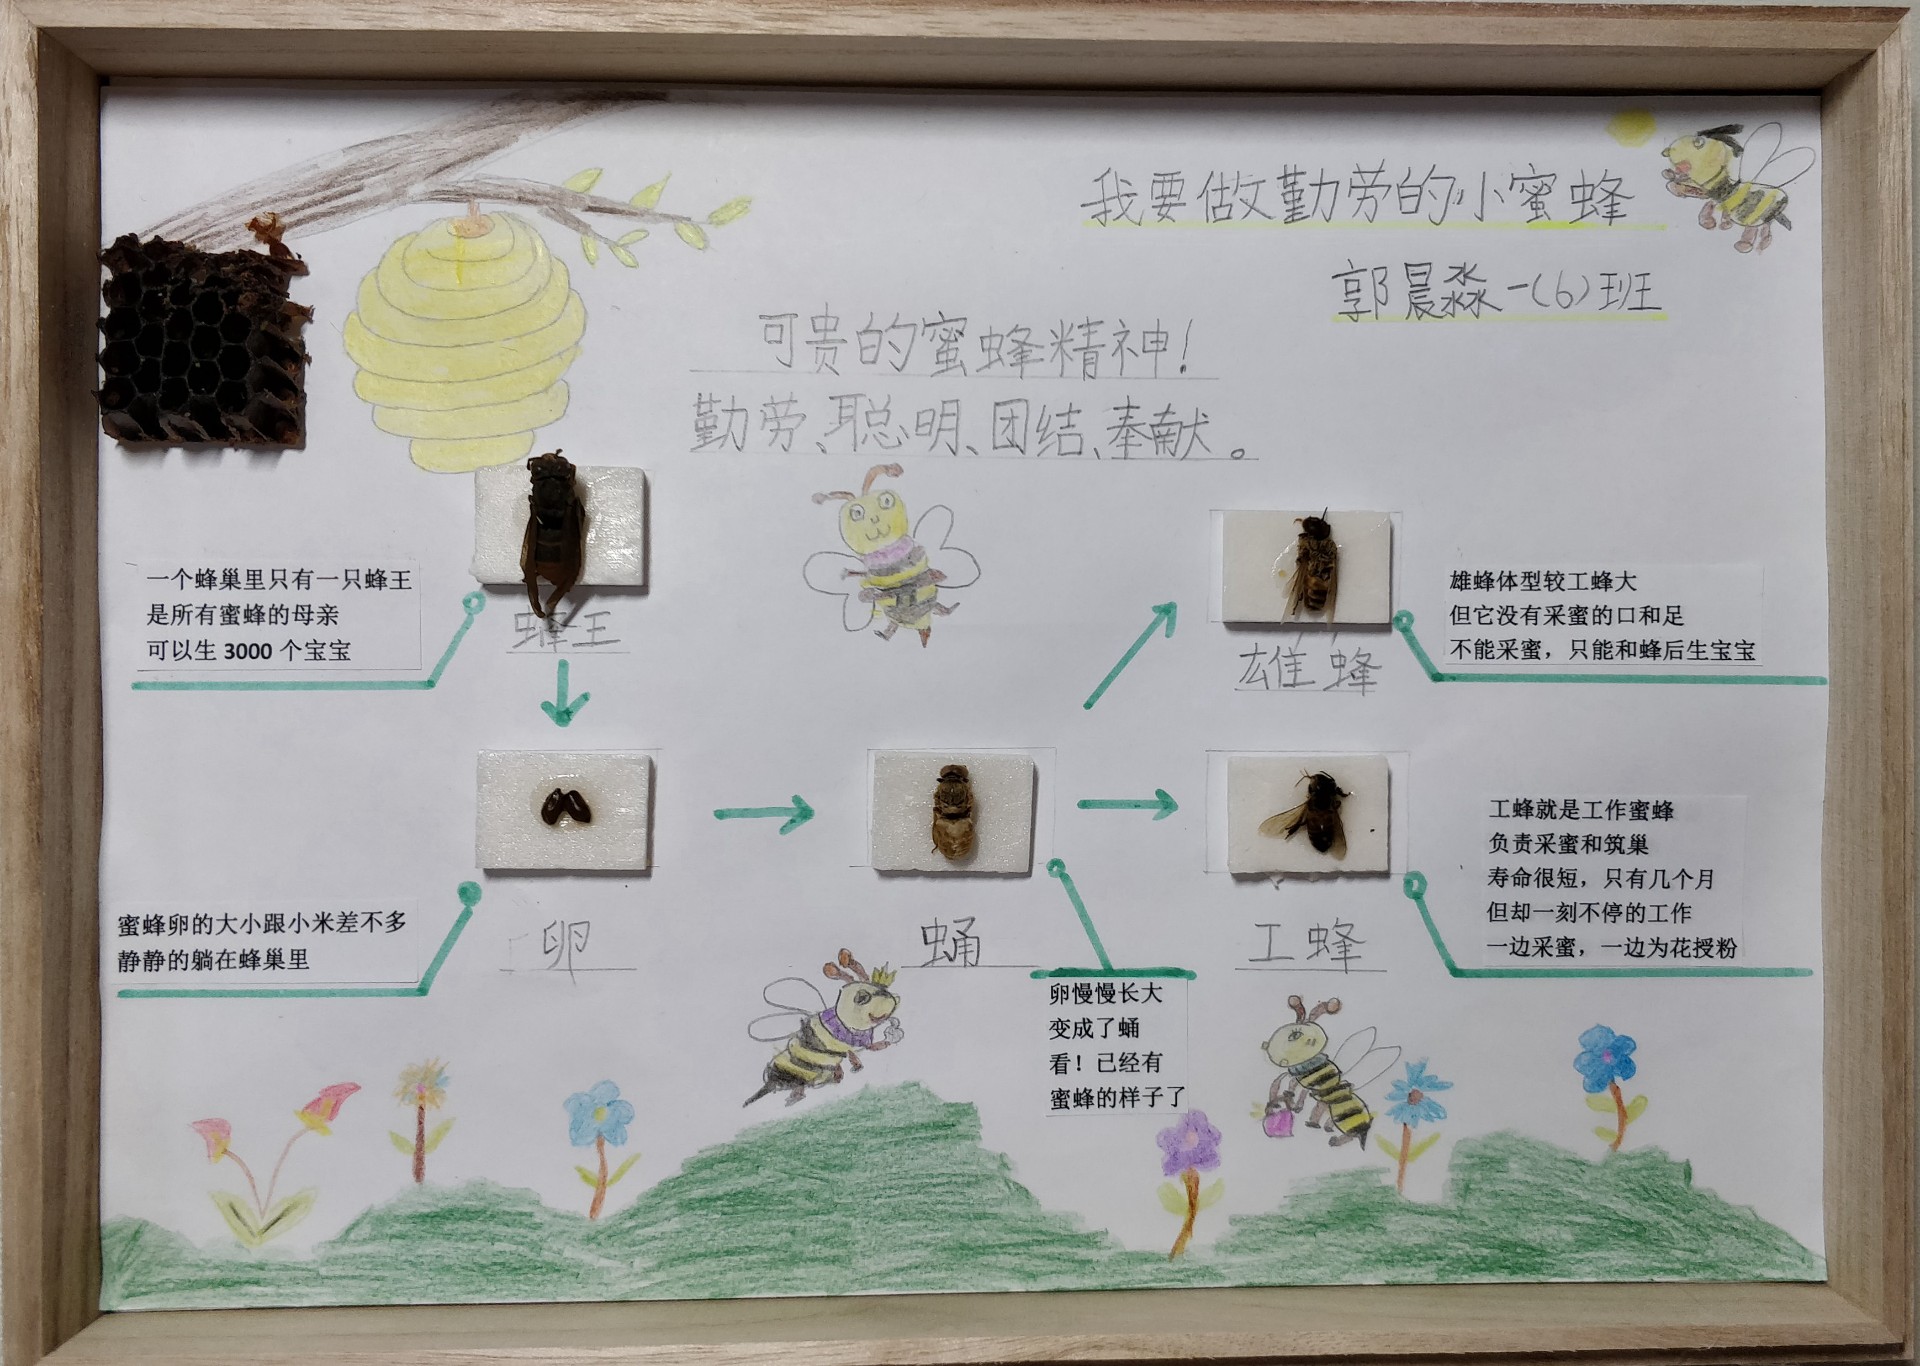 我要做勤劳的小蜜蜂
郭晨淼一(6)班
可贵的蜜蜂精神!
勤劳、聪明、团结、奉献。
一个蜂巢里只有一只蜂王
是所有蜜蜂的母亲
可以生 3000 个宝宝
蜂王
雄蜂体型较工蜂大
但它没有采蜜的口和足
不能采蜜，只能和蜂后生宝宝
雄蜂
蜜蜂卵的大小跟小米差不多
静静的躺在蜂巢里
卵
蛹
卵慢慢长大
变成了蛹
看！已经有
蜜蜂的样子了
工蜂
工蜂就是工作蜜蜂
负责采蜜和筑巢
寿命很短，只有几个月
但却一刻不停的工作
一边采蜜，一边为花授粉